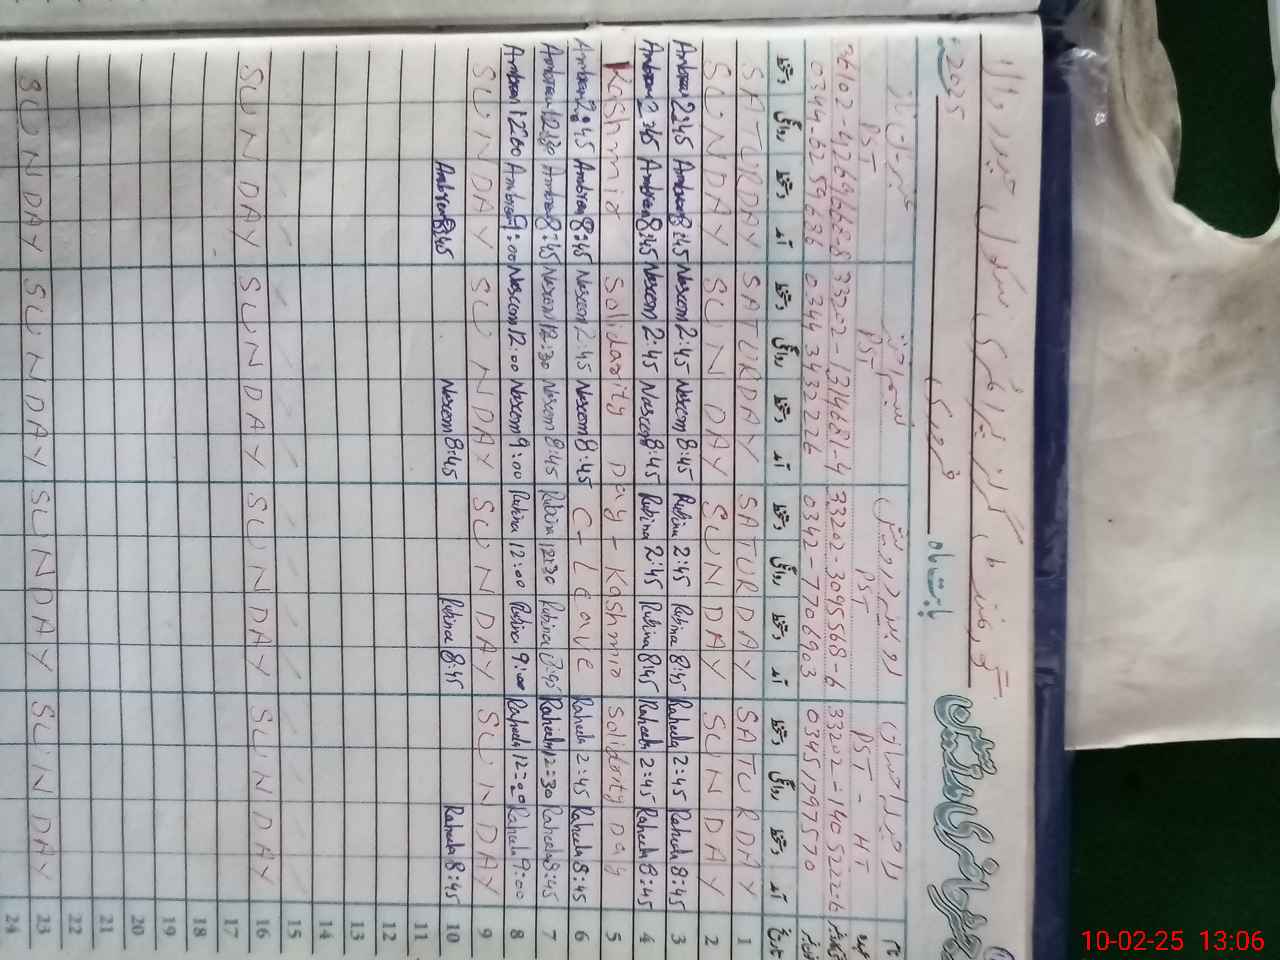 رجسٹر حاضری مدرسین
گورنمنٹ گرلز پرائمری سکول حیدر والا
بابت ماہ فروری 2025ء
نام
عہدہ PST PST PST PST - HT
33202-1405222-6 33202-3095568-6 33202-1314681-4
03451797570 0342-7706903 0344 3432226 0344-6259636
تاریخ آمد دستخط روانگی دستخط آمد دستخط روانگی دستخط آمد دستخط روانگی دستخط آمد دستخط روانگی دستخط
1 SATURDAY SATURDAY SATURDAY SATURDAY
2 SUNDAY SUNDAY SUNDAY SUNDAY
3 8:45 Raheela 2:45 Raheela 8:45 Rubina 2:45 Rubina 8:45 Nascem 2:45 Nascem 8:45 Ambreen 2:45 Ambreen
4 8:45 Raheela 2:45 Raheela 8:45 Rubina 2:45 Rubina 8:45 Nascem 2:45 Nascem 8:45 Ambreen 2:45 Ambreen
5 Kashmir Solidarity Day - Kashmir Solidarity Day
6 8:45 Raheela 2:45 Raheela C - Leave 8:45 Nascem 2:45 Nascem 8:45 Ambreen 2:45 Ambreen
7 8:45 Raheela 12:30 Raheela 8:45 Rubina 12:30 Rubina 8:45 Nascem 12:30 Nascem 8:45 Ambreen 12:30 Ambreen
8 9:00 Raheela 12:00 Raheela 9:00 Rubina 12:00 Rubina 9:00 Nascem 12:00 Nascem 9:00 Ambreen 12:00 Ambreen
9 SUNDAY SUNDAY SUNDAY SUNDAY
10 8:45 Raheela 8:45 Rubina 8:45 Nascem 8:45 Ambreen
11
12
13
14
15
16 SUNDAY SUNDAY SUNDAY SUNDAY
17
18
19
20
21
22
23 SUNDAY SUNDAY SUNDAY SUNDAY
24
10-02-25 13:06